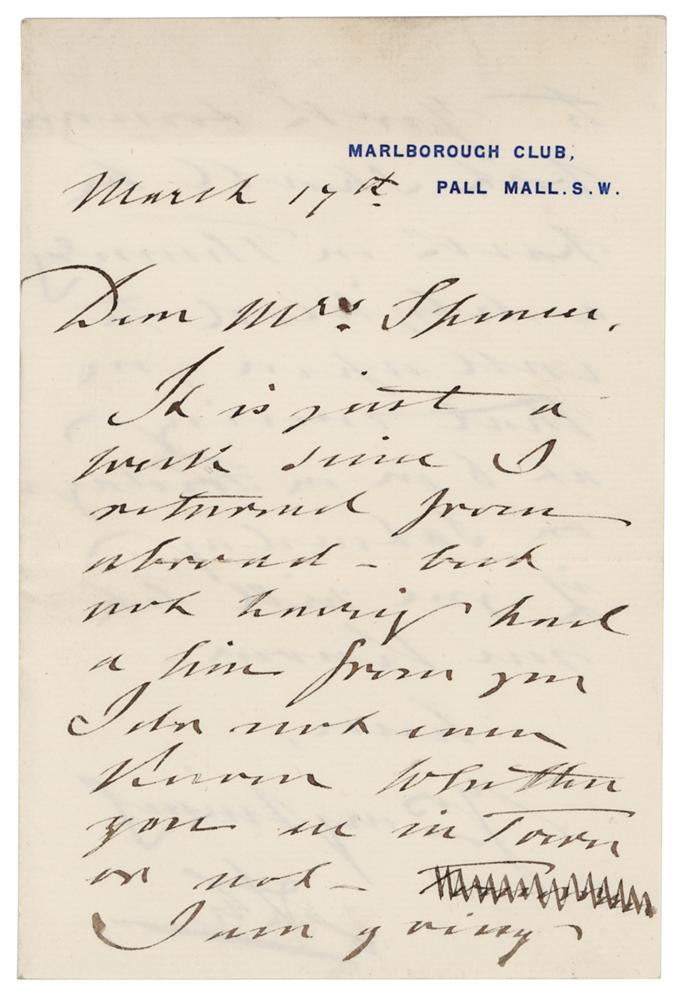 MARLBOROUGH CLUB,
PALL MALL. S. W.
March 17th
Dear Mrs. Spencer,
It is just a
week since I
returned from
abroad - but
not having had
a line from you
I do not even
know whether
you are in Town
or not -
I am going